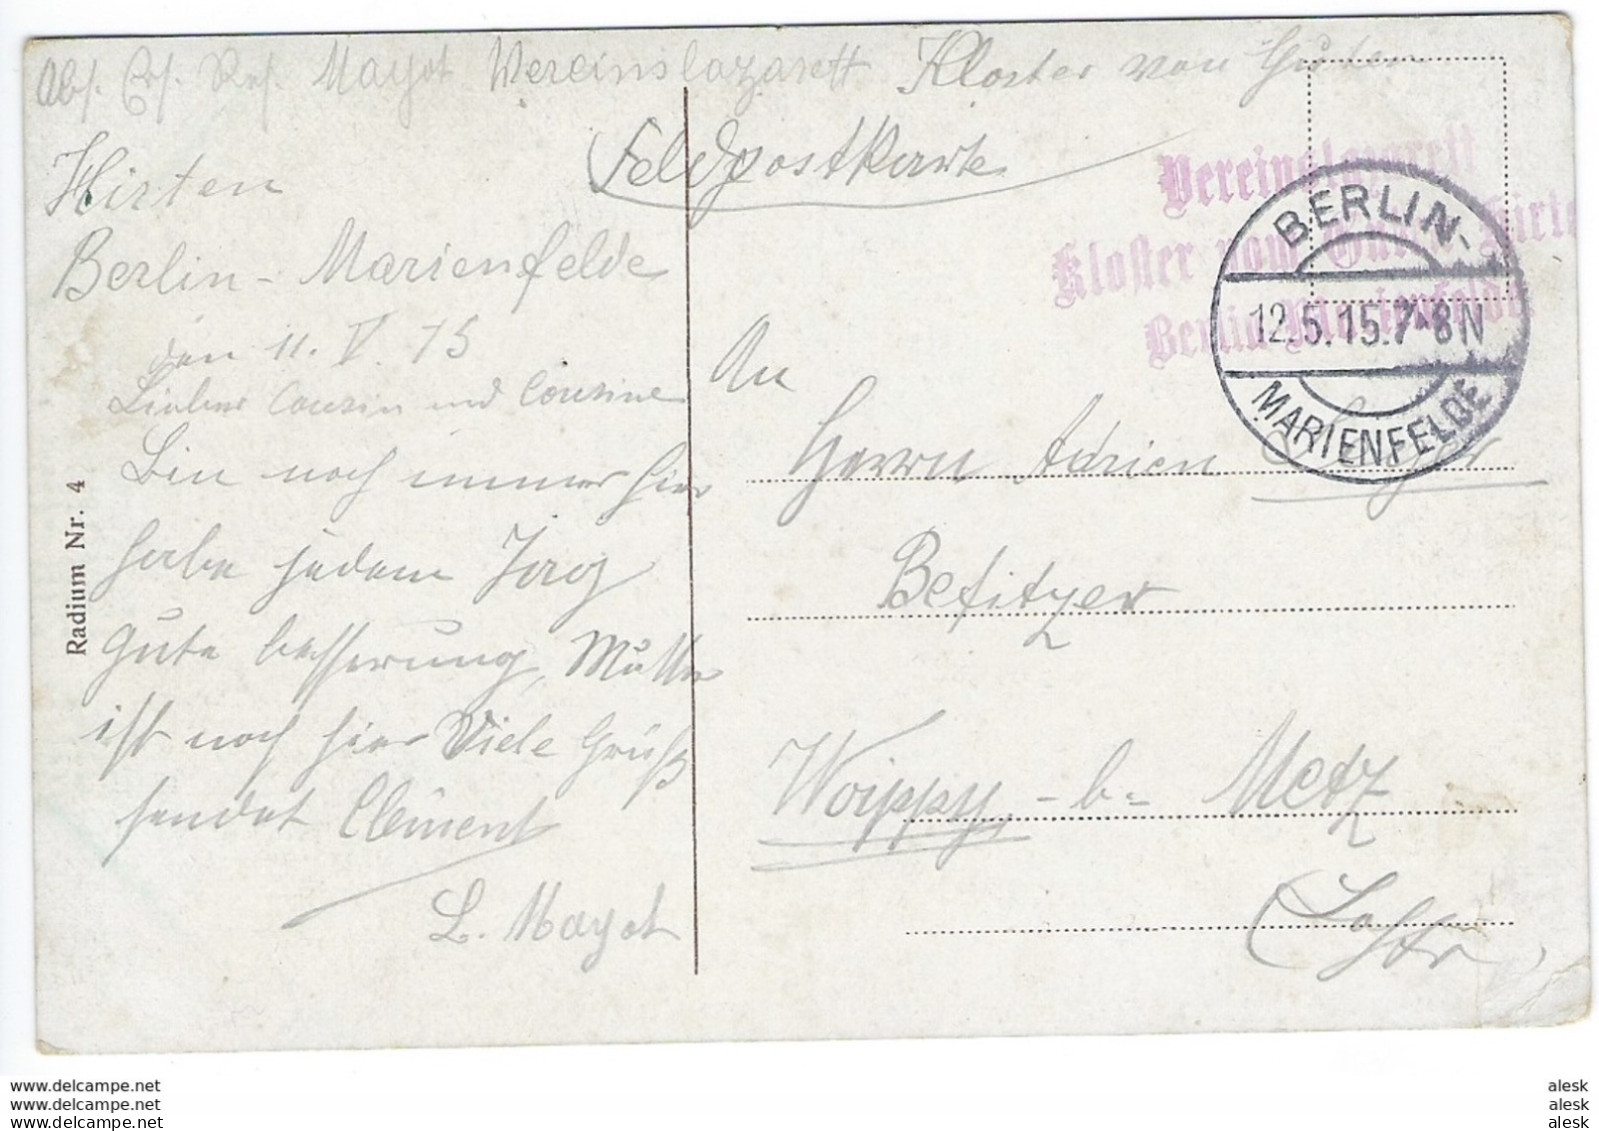 Abs. Ers. Res. Mayot Vereinslazarett Kloster von Guten
Hirten
Berlin - Marienfelde
den 11. V. 15
Lieber Cousin und Cousine
Bin noch immer hier
habe jedem Tag
gute besserung, Mutter
ist noch hier Viele Grüß
sendet Clément
L. Mayot
Radium Nr. 4
Feldpostkarte
Vereinslazarett
Kloster vom Guten Hirte
Berlin-Marienfelde.
BERLIN-
12.5.15.7-8N
MARIENFELDE
An
Herrn Adrien
Besitzer
Woippy, - b- Metz
(Lothr.
www.delcampe.net
www.delcampe.net
www.delcampe.net
alesk
alesk
alesk